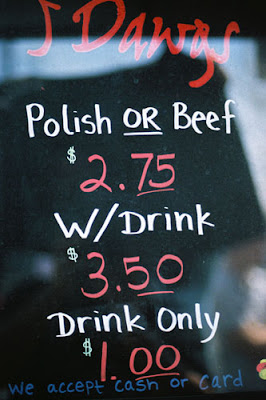 J Dawgs
Polish OR Beef
$2.75
W/Drink
$3.50
Drink Only
$1.00
we accept cash or card